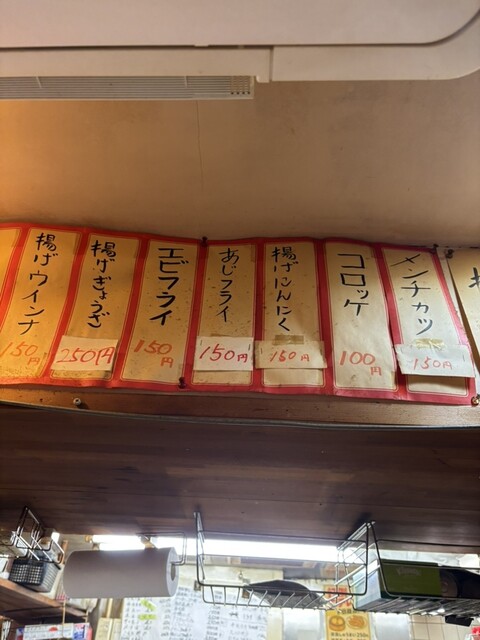 メンチカツ
150円
コロッケ
100円
揚げにんにく
150円
あじフライ
150円
エビフライ
150円
揚げぎょうざ
250円
揚げウインナ
150円